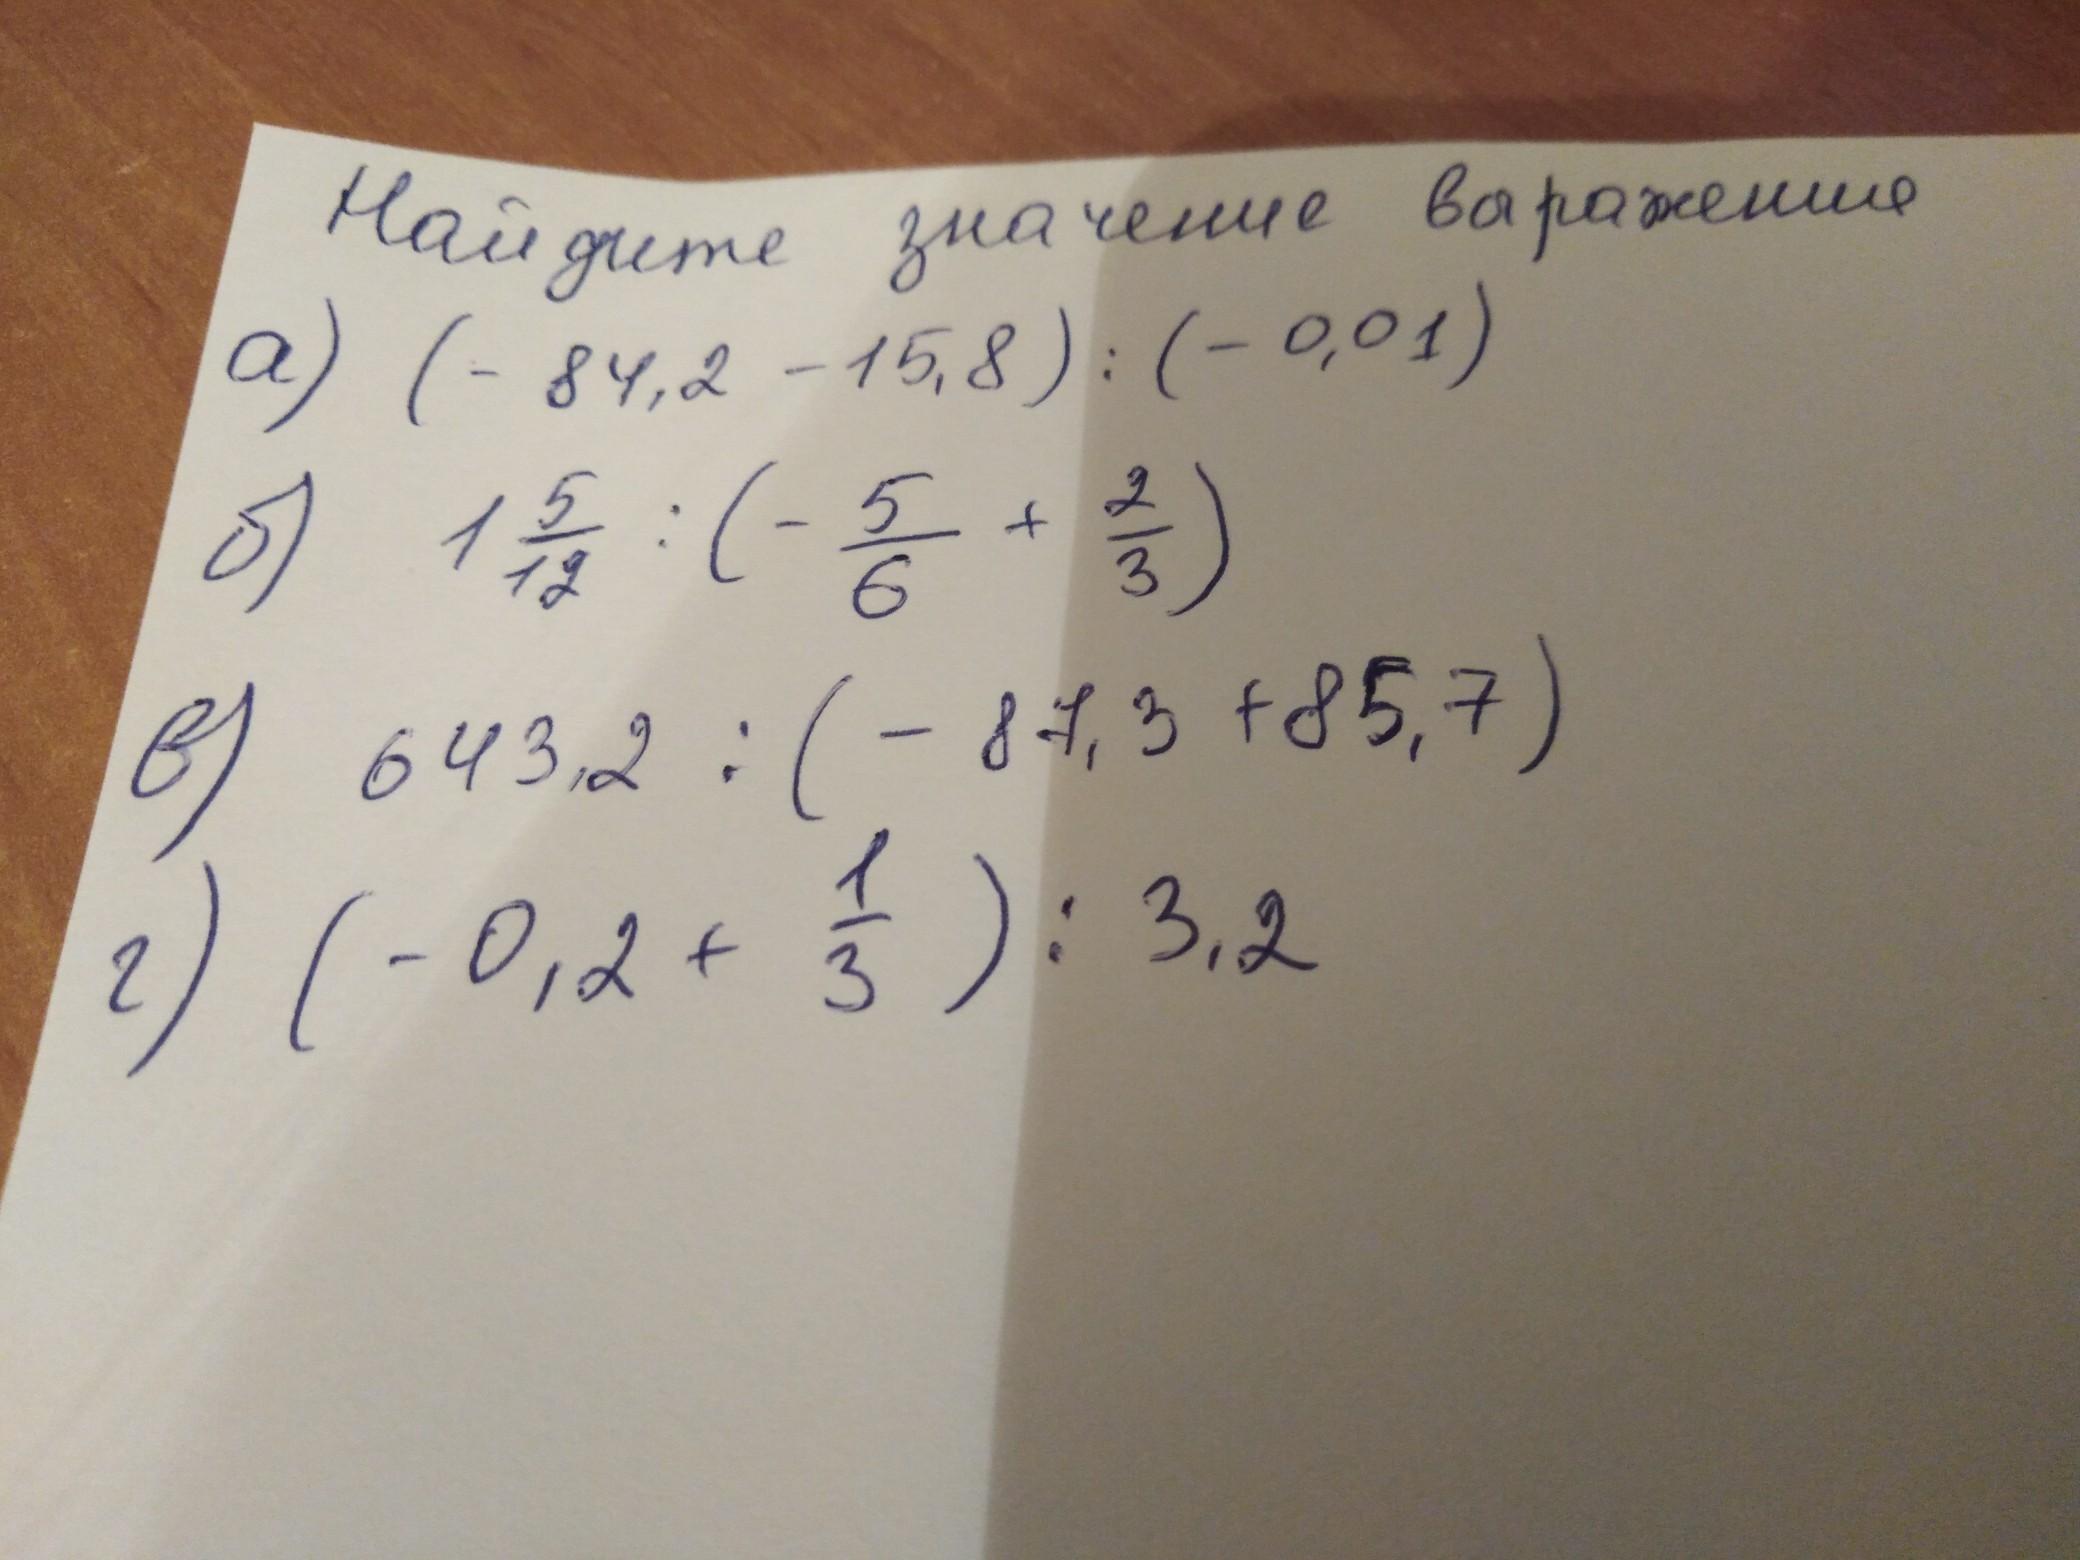 Найдите значение выражение
а) (- 84,2 - 15,8) : (- 0,01)
б) 1 5/12 : (- 5/6 + 2/3)
в) 643,2 : (- 87,3 + 85,7)
г) (- 0,2 + 1/3) : 3,2